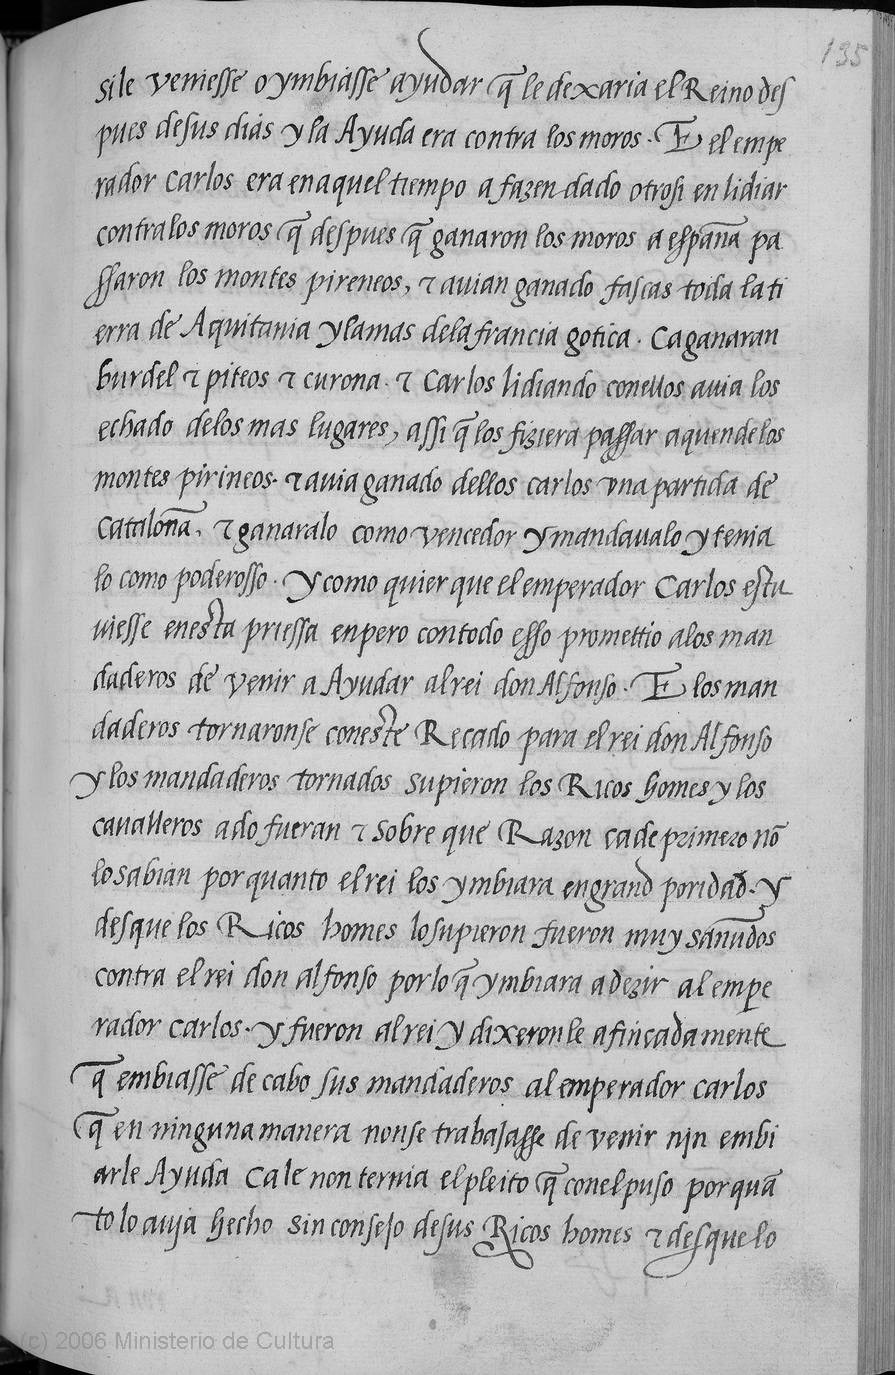 135
sile veniesse o ymbiasse ayudar q̃ le dexaria el Reino des
pues desus dias y la Ayuda era contra los moros. E el empe
rador carlos era en aquel tiempo a fazendado otrosi en lidiar
contra los moros q̃ despues q̃ ganaron los moros a españa pa
ssaron los montes pireneos, τ avian ganado fascas toda la ti
erra de Aquitania y lamas dela francia gotica. Ca ganaran
burdel τ piteos τ curona. τ Carlos lidiando conellos auia los
echado delos mas lugares, assi q̃ los fiziera passar aquende los
montes pirineos. τ auia ganado dellos carlos vna partida de
Cataloña, τ ganaralo como vencedor y mandaualo y tenia
lo como poderosso. y como quier que el emperador Carlos estu
uiesse enesta priessa enpero contodo esso promettio alos man
daderos de venir a Ayudar al rei don Alfonso. E los man
daderos tornaronse coneste Recado para el rei don Alfonso
y los mandaderos tornados supieron los Ricos homes y los
caualleros ado fueran τ sobre que Razon ca de primero nõ
lo sabian por quanto el rei los ymbiara engrand poridad. y
desque los Ricos homes lo supieron fueron muy sañudos
contra el rei don alfonso por lo q̃ ymbiara a dezir al empe
rador carlos. y fueron al rei y dixeronle afincadamente
q̃ embiasse de cabo sus mandaderos al emperador carlos
q̃ en ninguna manera nonse trabajasse de venir nin embi
arle Ayuda Ca le non ternia el pleito q̃ conel puso por quã
to lo auia hecho sin consejo desus Ricos homes τ desque lo
(c) 2006 Ministerio de Cultura